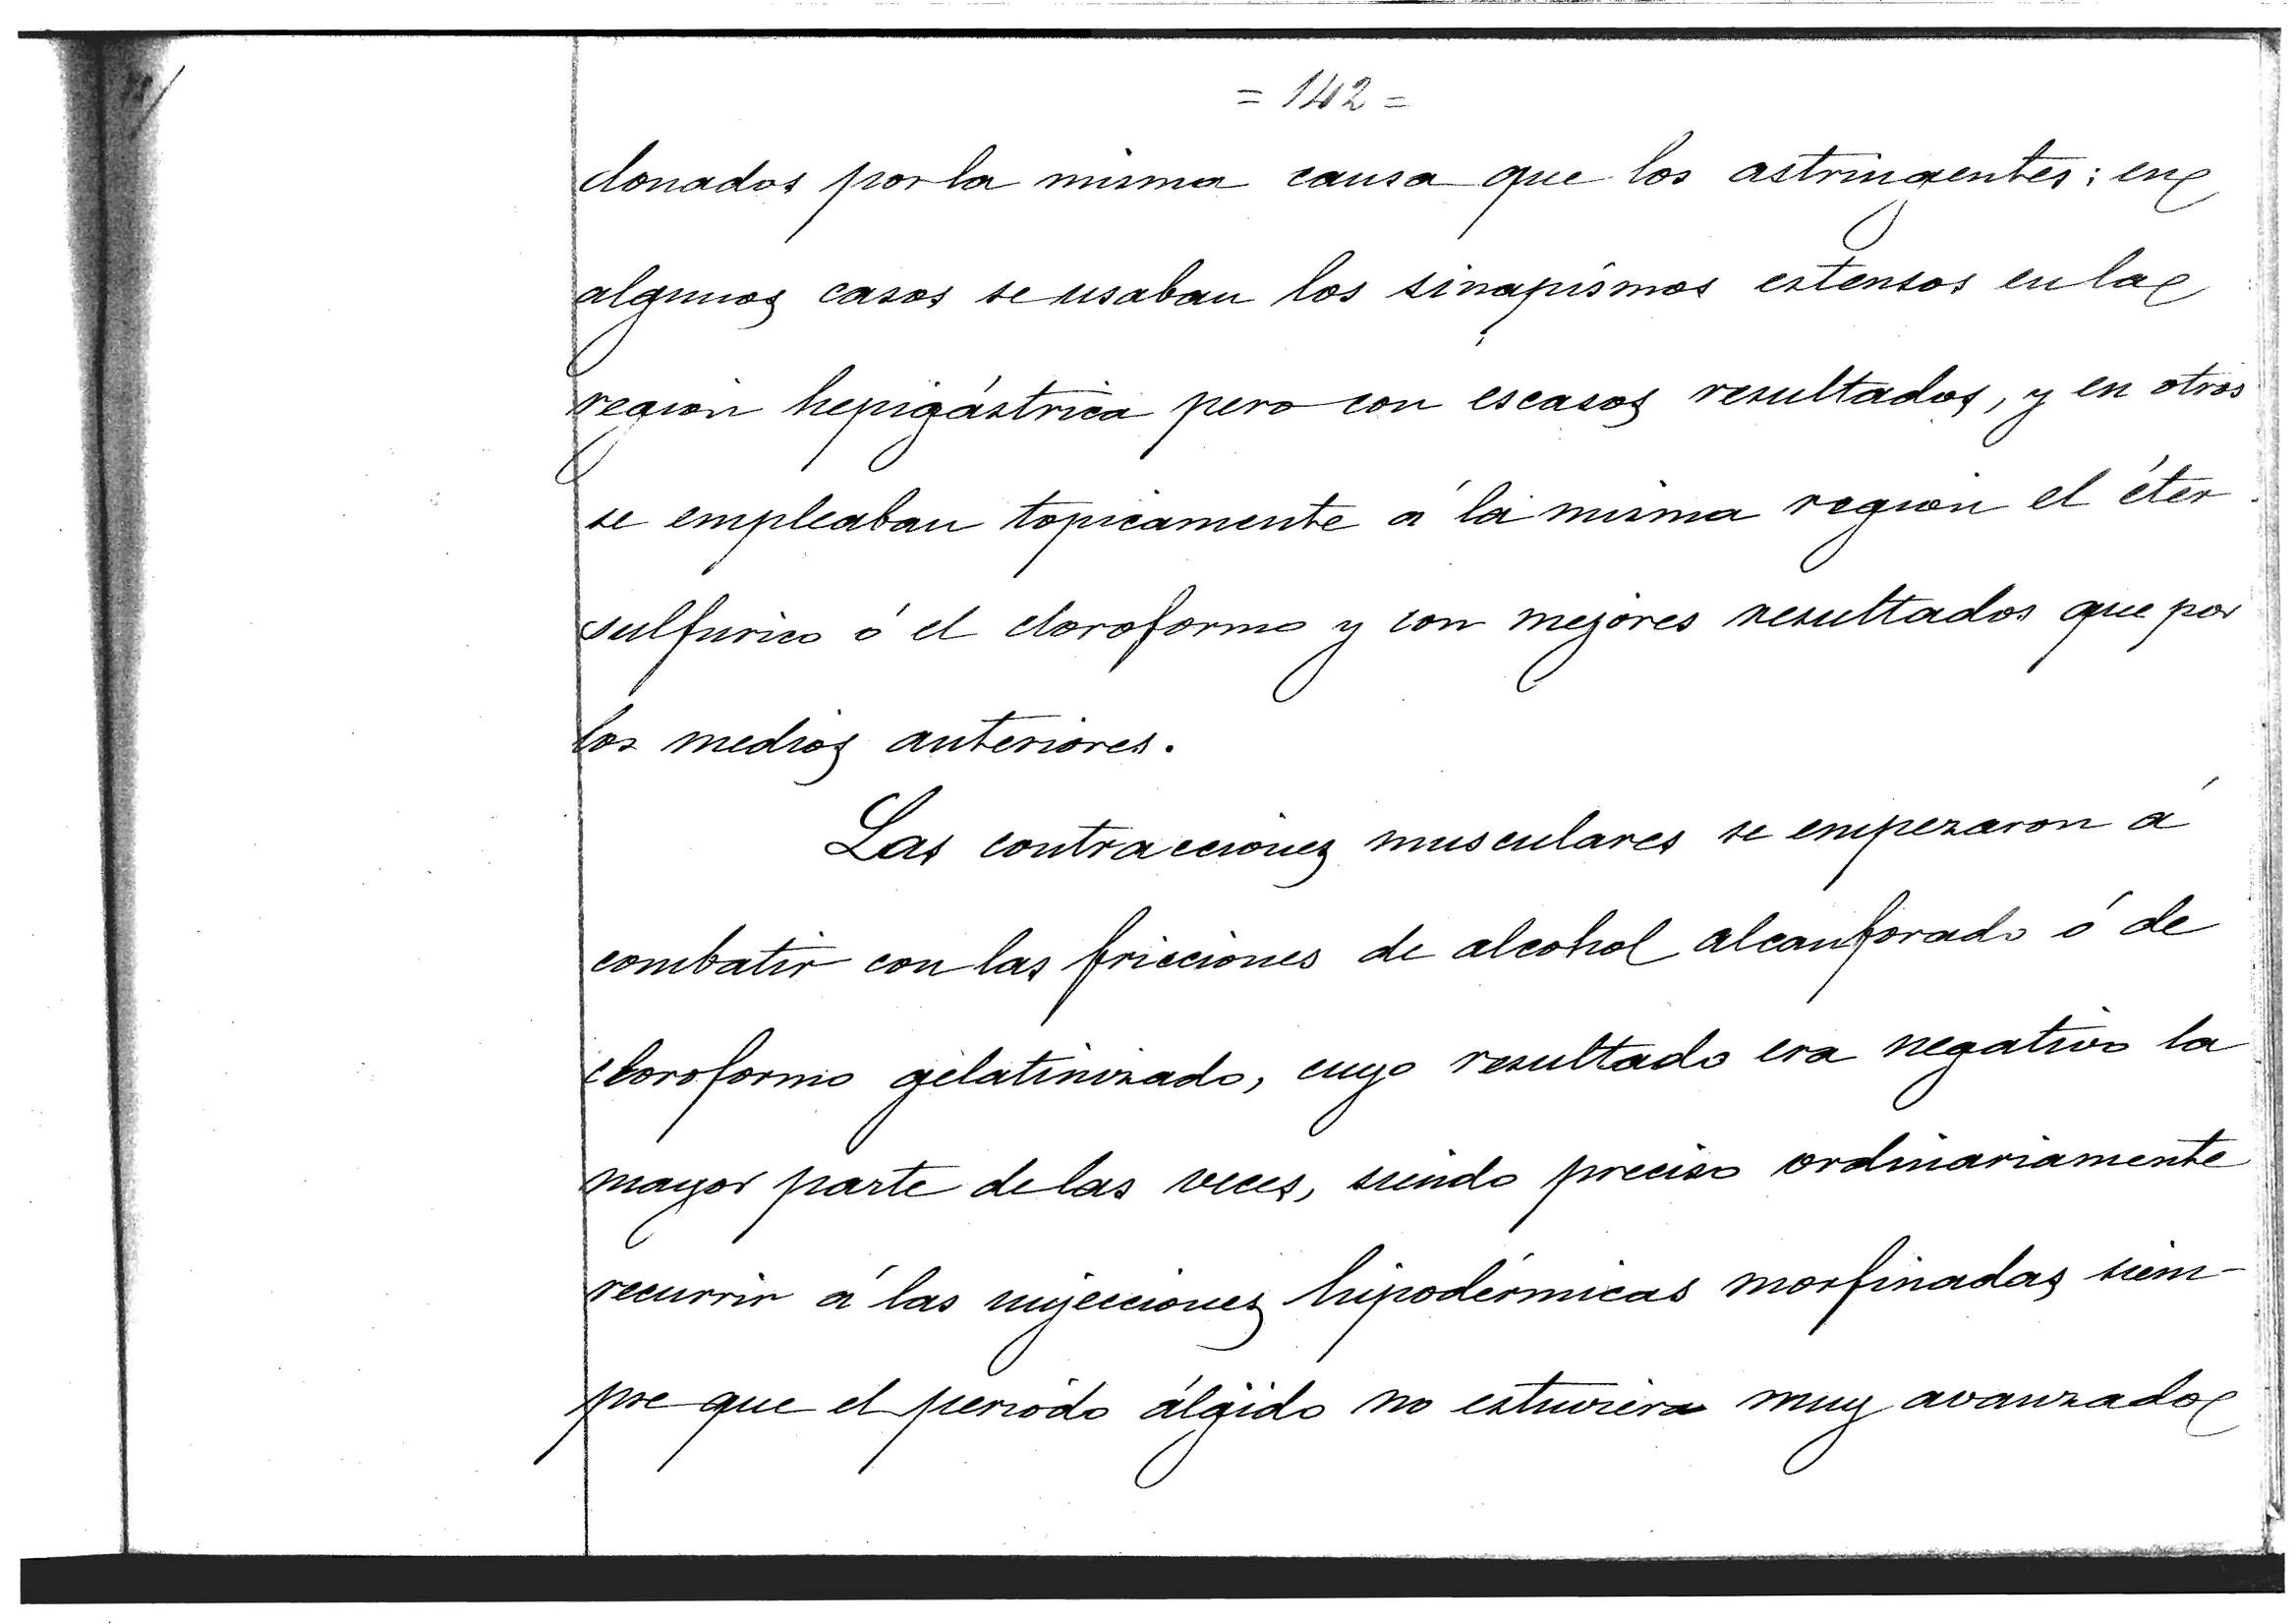 = 142 =
donados por la misma causa que los astringentes; en
algunos casos se usaban los sinapismos estensos en la
region hepigástrica pero con escasos resultados, y en otros
se empleaban topicamente á la misma region el éter
sulfurico ó el cloroformo y con mejores resultados que por
los medios anteriores.
Las contracciones musculares se empezaron á
combatir con las fricciones de alcohol alcanforado ó de
cloroformo gelatinizado, cuyo resultado era negativo la
mayor parte de las veces, siendo preciso ordinariamente
recurrir á las inyecciones hipodérmicas morfinadas siem-
pre que el periodo álgido no estuviera muy avanzado